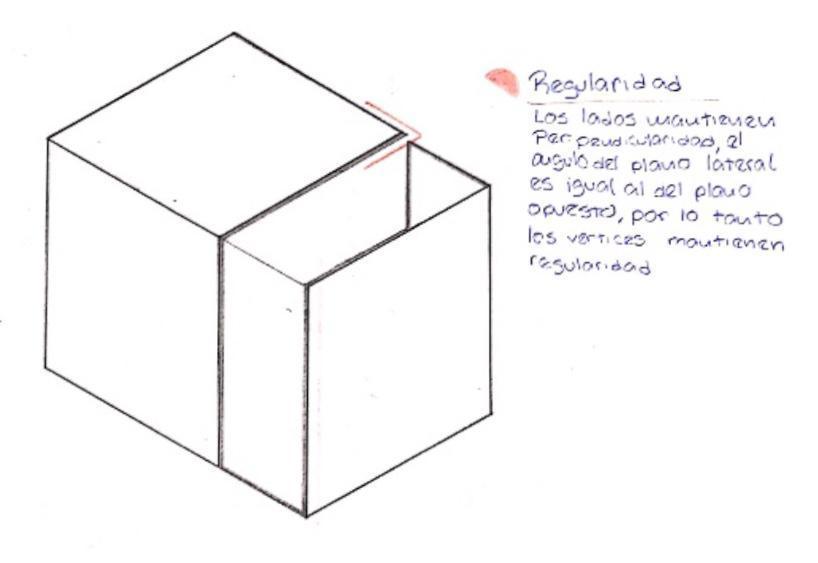 Regularidad
Los lados mantienen
Perpendicularidad, el
angulo del plano lateral
es igual al del plano
opuesto, por lo tanto
los vertices mantienen
regularidad